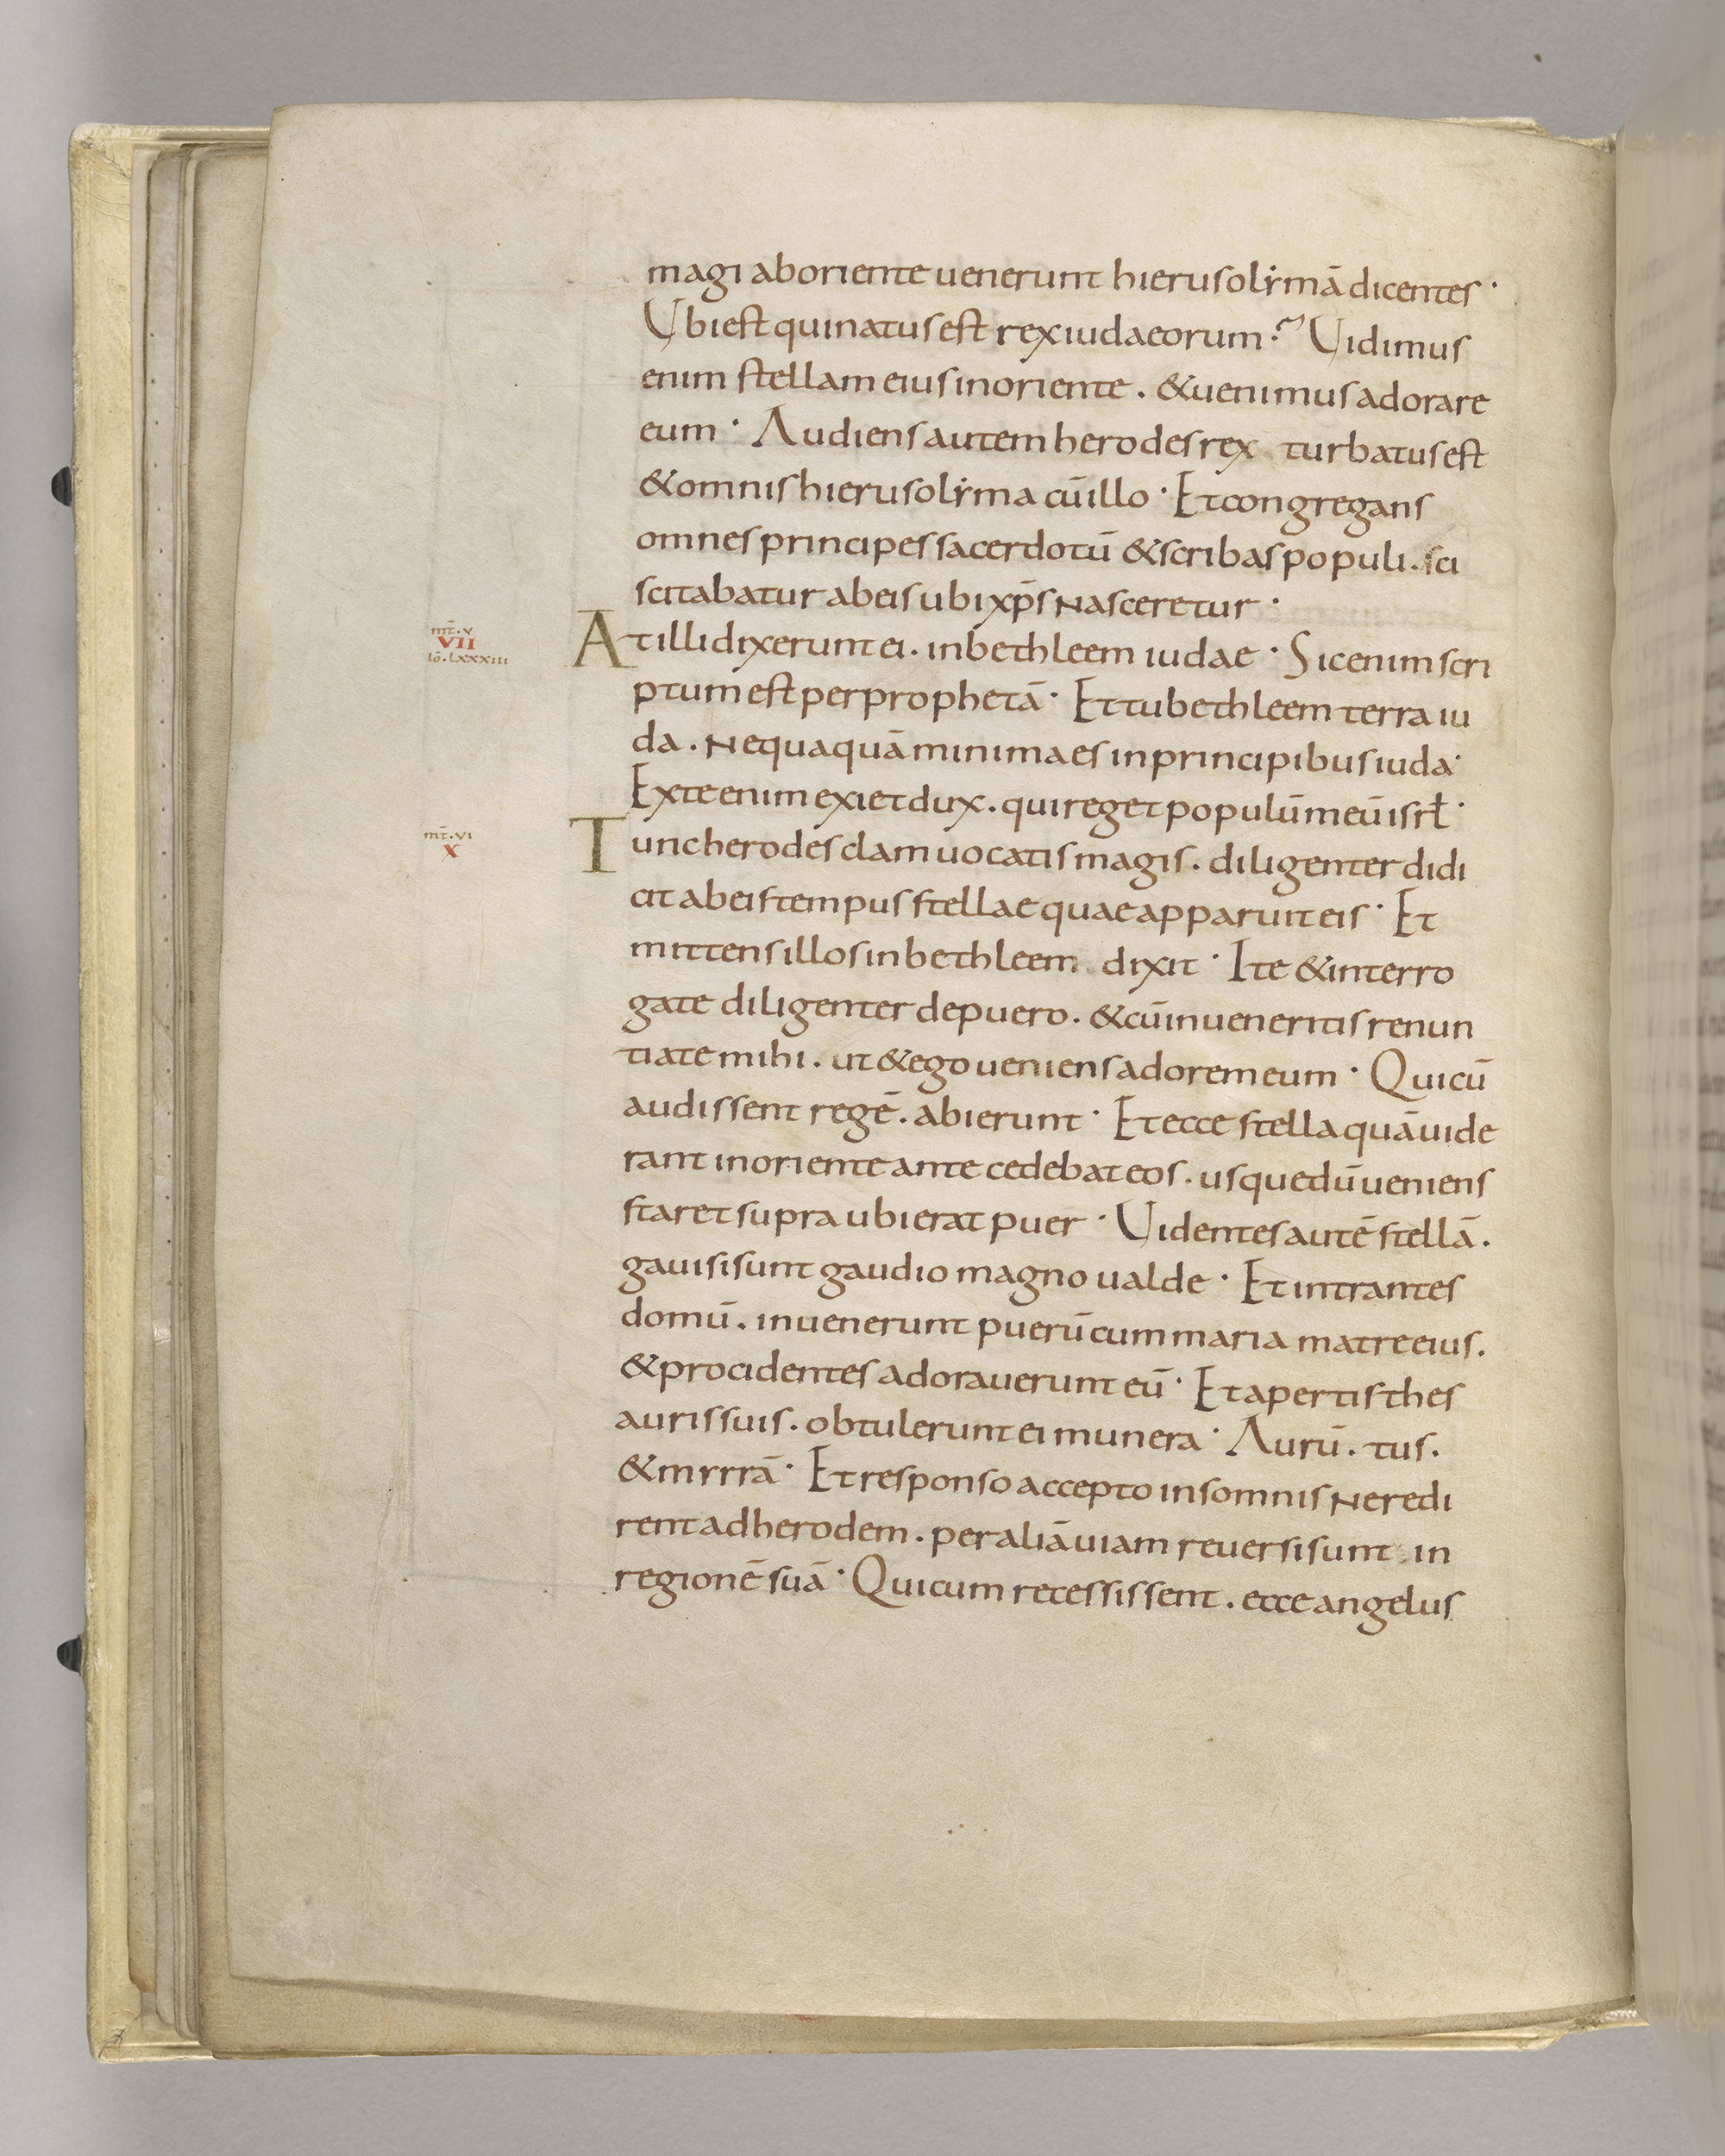 magi aboriente uenerunt hierusolẏmā dicentes ·
Ubiest quinatusest rexiudaeorum? Uidimus
enim stellam eiusinoriente . &uenimusadorare
eum · Audiensautem herodesrex turbatusest
&omnishierusolẏma cūillo · Etcongregans
omnes principessacerdotū &scribaspopuli . sci
scitabatur abeisubixp̄s Nasceretur ·
mt̄ . v
VII
iō . lxxxiii
Atillidixerunt ei . inbethleem iudae · Sicenim scri
ptumest perprophetā · Ettubethleem terra iu
da . Nequaquā minimaes inprincipibusiuda ·
Exteenim exietdux . quireget populūmeūisrł ·
mt̄ . vi
X
Tuncherodesclam uocatis magis . diligenter didi
cit abeistempusstellae quaeapparuit eis · Et
mittensillosinbethleem dixit · Ite &interro
gate diligenter depuero . &cūinueneritis renun
tiate mihi . ut &ego ueniensadoremeum · Quicū
audissent regē . abierunt · Etecce stellaquāuide
rant inorienteante cedebateos . usquedūueniens
staretsupra ubierat puer · Uidentesautē stellā .
gauisisunt gaudio magno ualde · Et intrantes
domū . inuenerunt puerū cummaria matreeius .
&procidentes adorauerunt eū · Etapertisthes
aurissuis . obtulerunt ei munera · Aurū . tus .
&mrrrā · Etresponso accepto insomnis Neredi
rentadherodem . peraliāuiam reuersisunt in
regionē suā · Quicum recessissent . ecce angelus